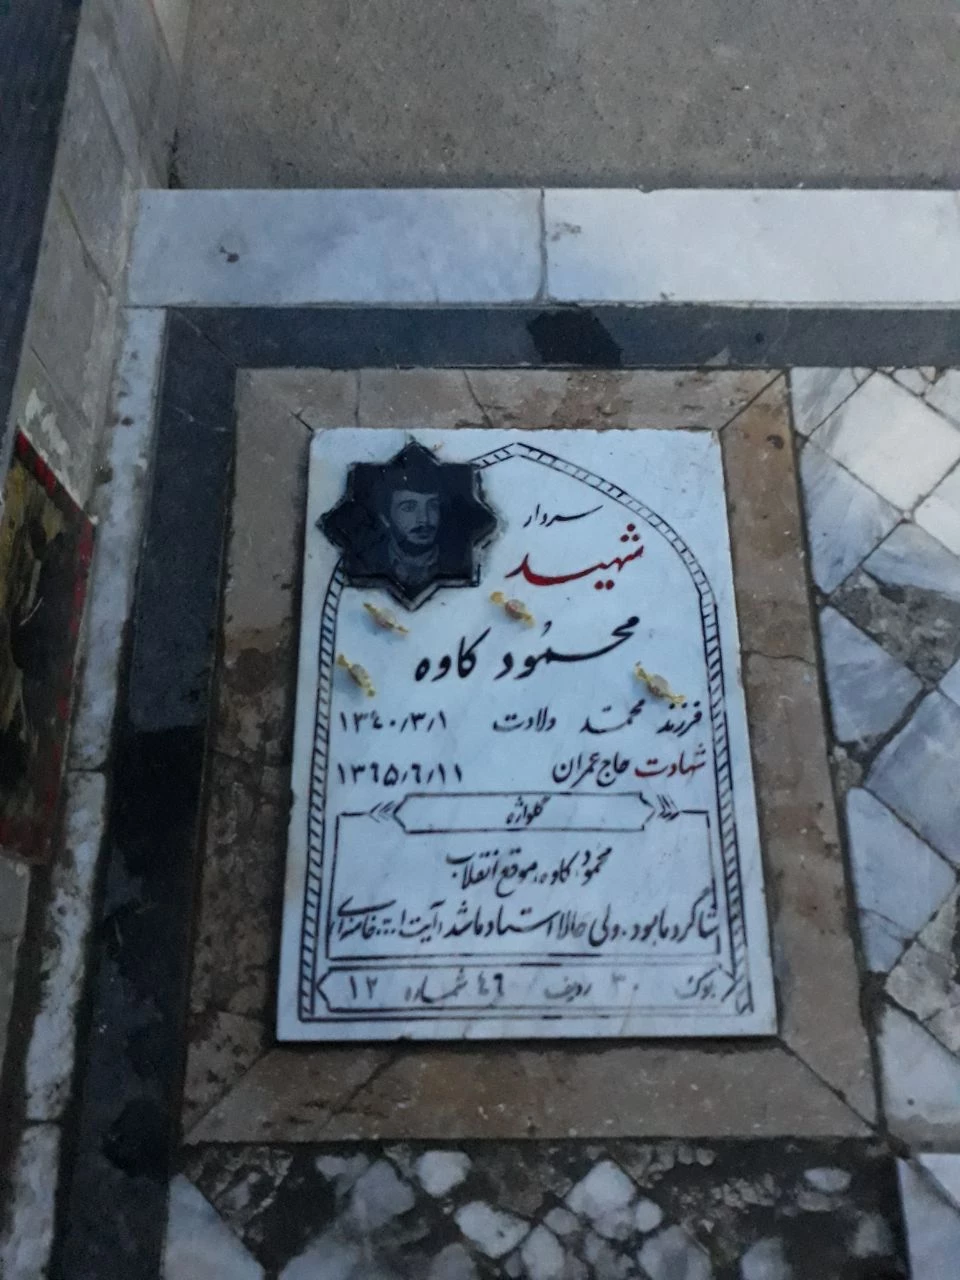 سردار
شهید
محمُود کاوه
فرزند محمّد ولادت ۱۳٤۰/۳/۱
شهادت حاج عمران ۱۳٦۵/٦/۱۱
گلواژه
محمود کاوه، موقع انقلاب
شاگرد ما بود، ولی حالا استاد ما شد، آیت ا... خامنه ای
بلوک ۳۰ ردیف ٤٦ شماره ۱۲